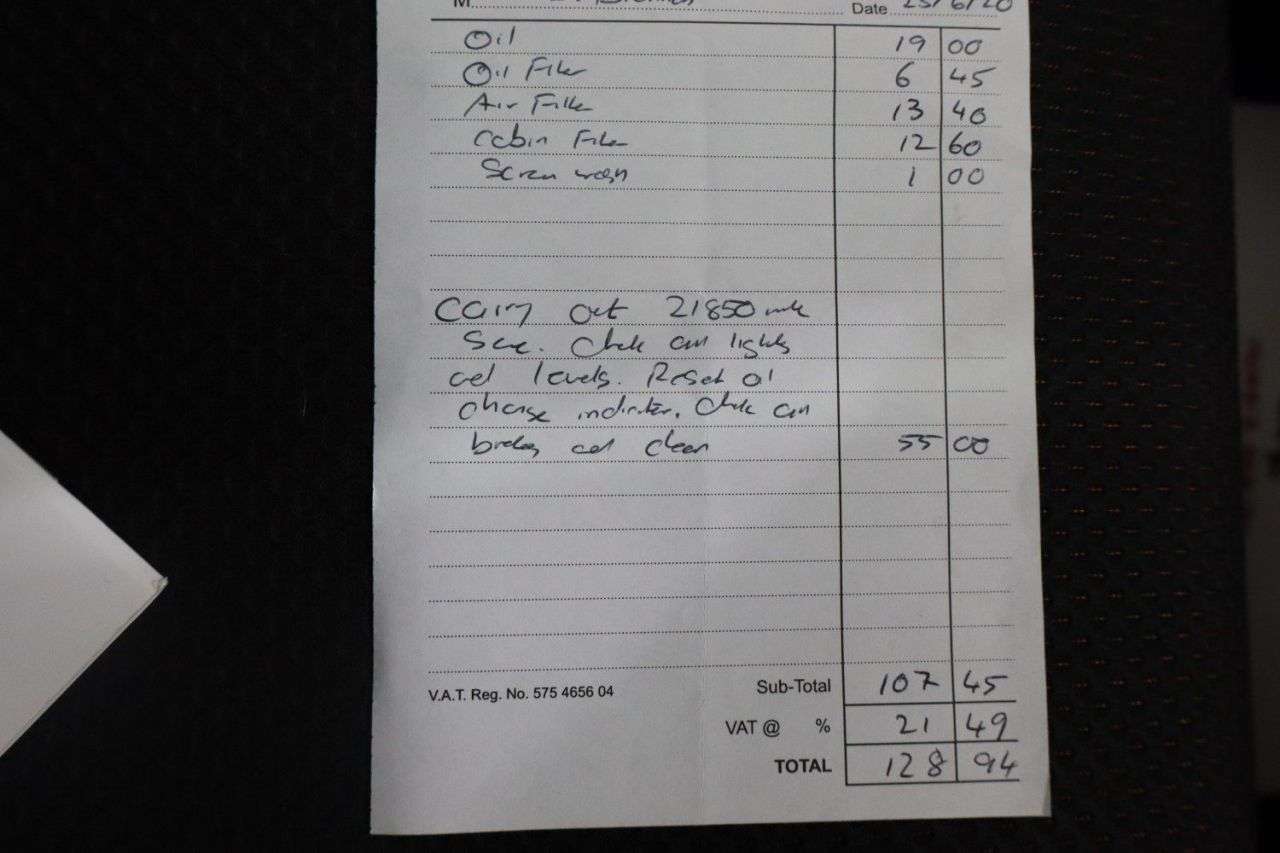 M
Date 25/6/20
Oil 19 00
Oil Filter 6 45
Air Filter 13 40
Cabin Filter 12 60
Screen wash 1 00
Carry out 21850 mile
Service. Check all lights
and levels. Reset oil
change indicator. Check all
brakes and clean 55 00
V.A.T. Reg. No. 575 4656 04 Sub-Total 107 45
VAT @ % 21 49
TOTAL 128 94